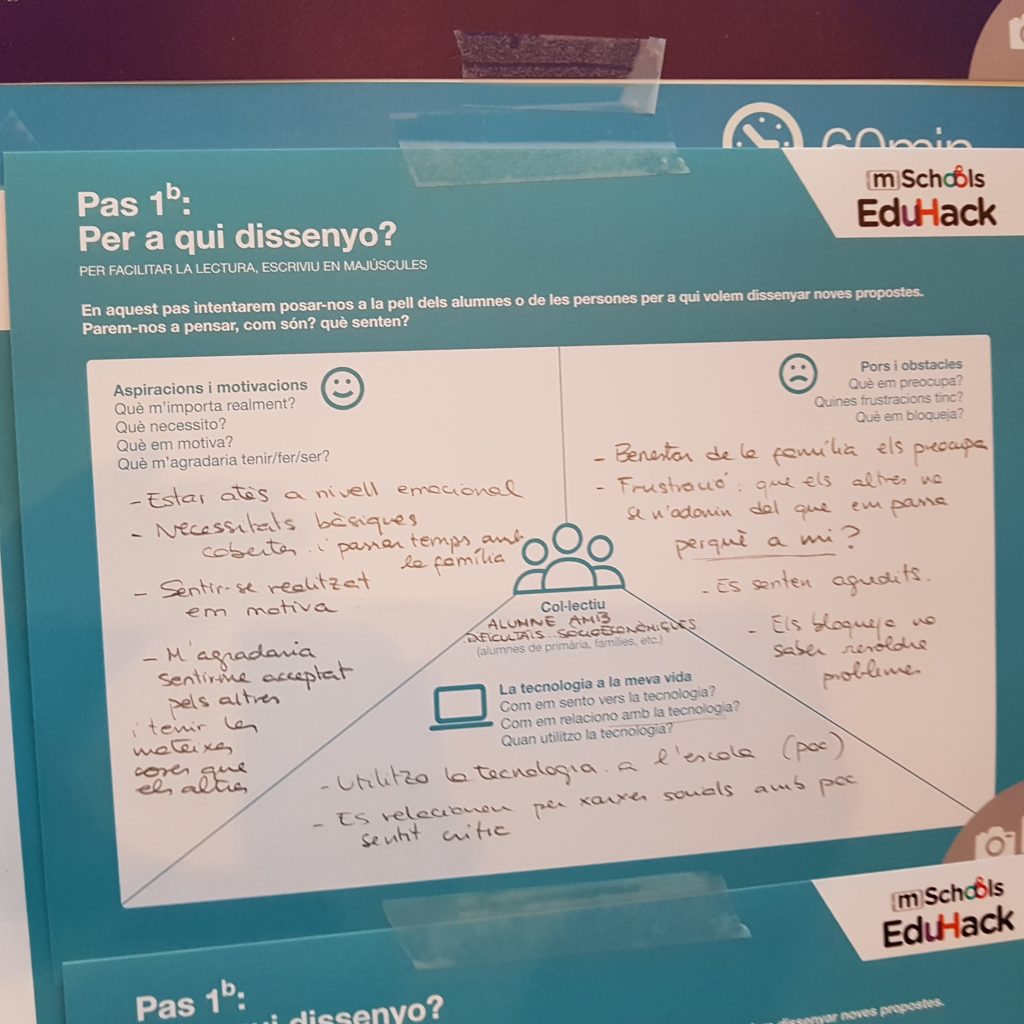 60min
mSchools
EduHack
Pas 1b:
Per a qui dissenyo?
PER FACILITAR LA LECTURA, ESCRIVIU EN MAJÚSCULES
En aquest pas intentarem posar-nos a la pell dels alumnes o de les persones per a qui volem dissenyar noves propostes.
Parem-nos a pensar, com són? què senten?
Aspiracions i motivacions
Què m'importa realment?
Què necessito?
Què em motiva?
Què m'agradaria tenir/fer/ser?
- Estar atès a nivell emocional
- Necessitats bàsiques
cobertes i passar temps amb
la família
- Sentir-se realitzat
em motiva
- M'agradaria
sentirme acceptat
pels altres
i tenir les
mateixes
coses que
els altres
Pors i obstacles
Què em preocupa?
Quines frustracions tinc?
Què em bloqueja?
- Benestar de la família els preocupa
- Frustració: que els altres no
se n'adonin del que em passa
perquè a mi?
- Es senten agredits.
- Els bloqueja no
saber resoldre
problemes
Col·lectiu
ALUMNE AMB
DIFICULTATS SOCIOECONÒMIQUES
(alumnes de primària, famílies, etc.)
La tecnologia a la meva vida
Com em sento vers la tecnologia?
Com em relaciono amb la tecnologia?
Quan utilitzo la tecnologia?
- Utilitzo la tecnologia a l'escola (poc)
- Es relacionen per xarxes socials amb poc
sentit crític
mSchools
EduHack
Pas 1b:
qui dissenyo?
dissenyar noves propostes.